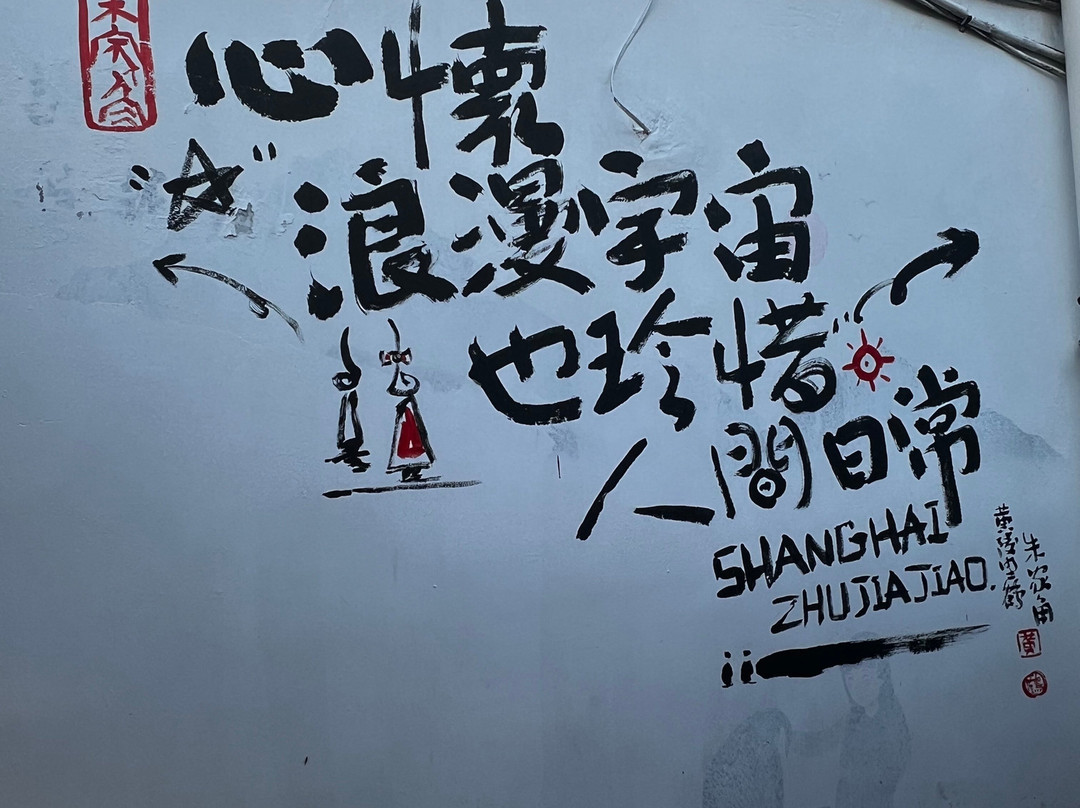 心懷
浪漫宇宙
也珍惜
人間日常
SHANGHAI
ZHUJIAJIAO.
朱家角
黄